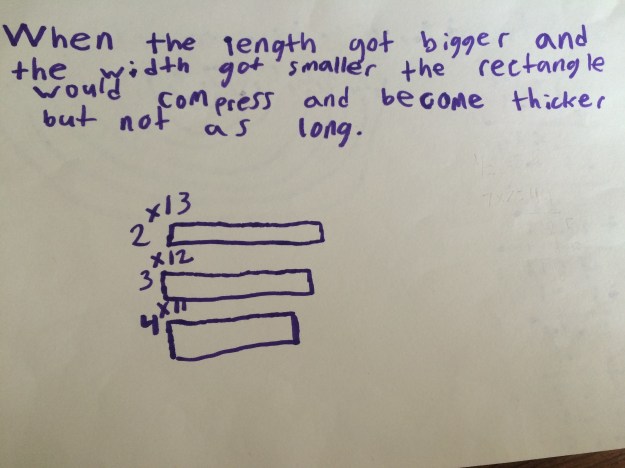 When the length got bigger and
the width got smaller the rectangle
would compress and become thicker
but not as long.
x13
2
x12
3
x11
4